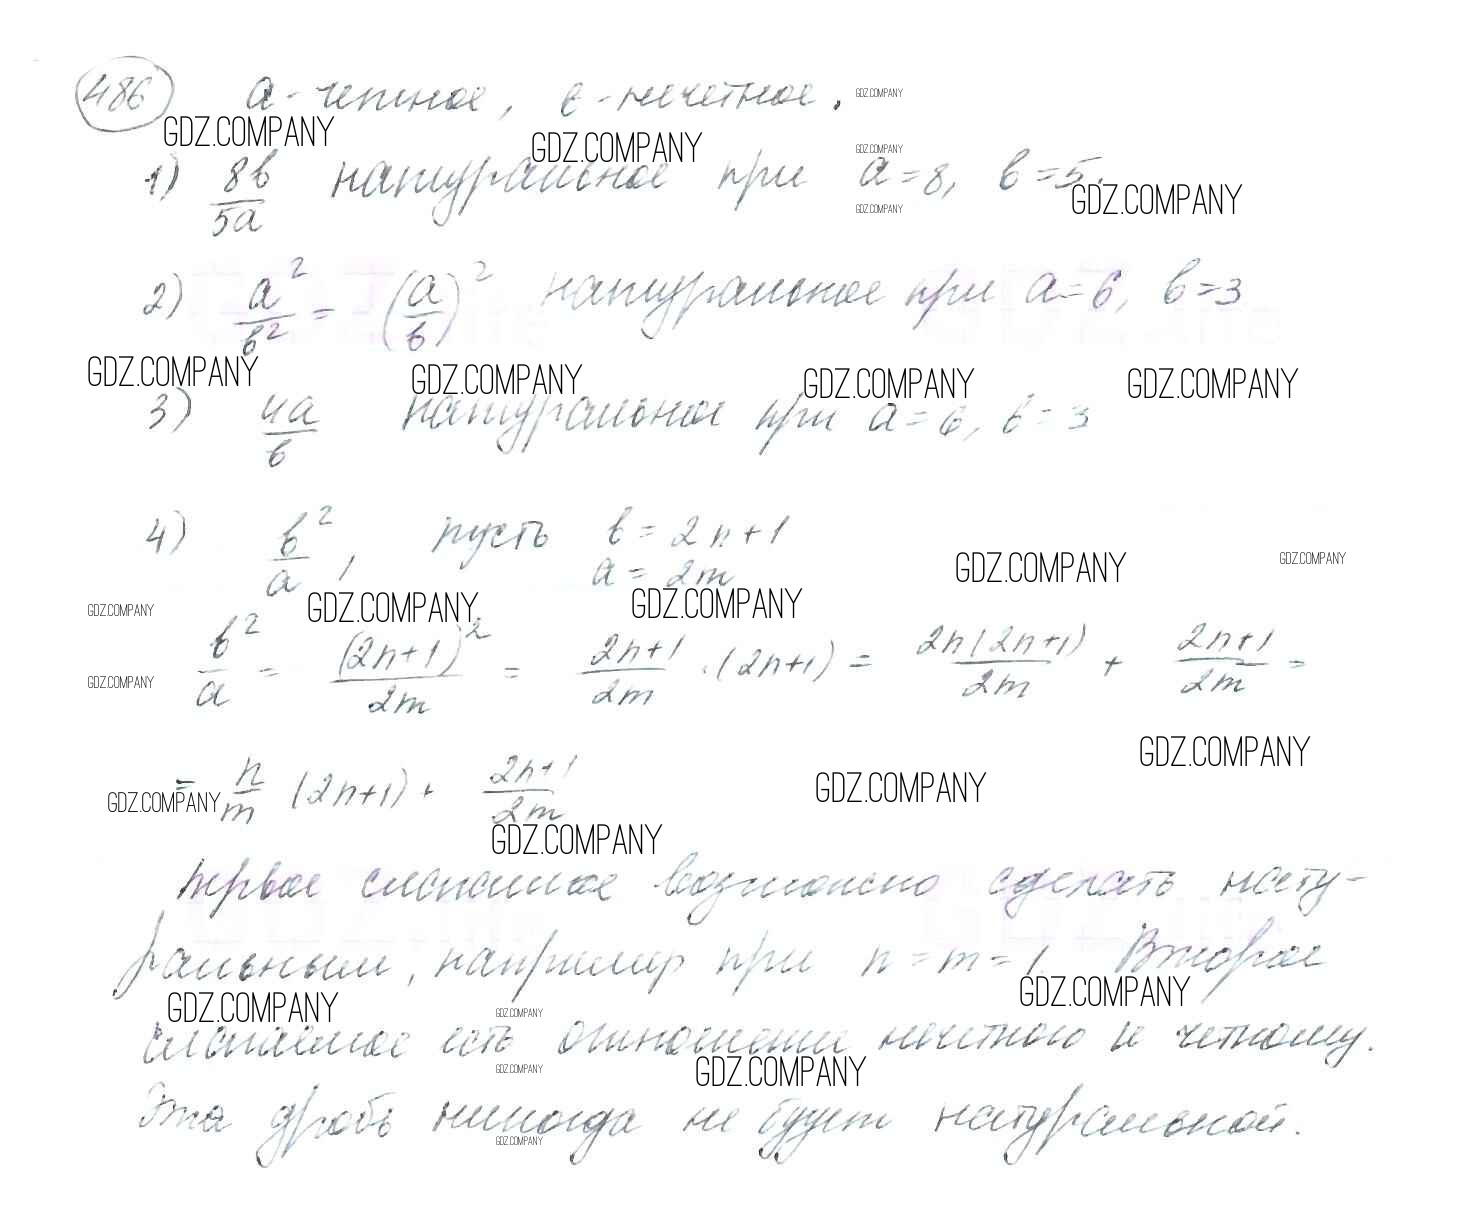 486 а - четное, в - нечетное.
GDZ.COMPANY
GDZ.COMPANY GDZ.COMPANY
GDZ.COMPANY
1) 8в/5а натуральное при а = 8, в = 5.
GDZ.COMPANY GDZ.COMPANY
2) а²/в² = (а/в)² натуральное при а = 6, в = 3
GDZ.COMPANY GDZ.COMPANY GDZ.COMPANY GDZ.COMPANY
3) 4а/в натуральное при а = 6, в = 3
4) в²/а, пусть в = 2n+1
а = 2m
GDZ.COMPANY GDZ.COMPANY
GDZ.COMPANY GDZ.COMPANY GDZ.COMPANY
в²/а = (2n+1)²/2m = 2n+1/2m · (2n+1) = 2n(2n+1)/2m + 2n+1/2m =
GDZ.COMPANY
GDZ.COMPANY
= n/m (2n+1) + 2n+1/2m
GDZ.COMPANY GDZ.COMPANY
GDZ.COMPANY
Первое слагаемое возможно сделать нату-
ральным, например при n = m = 1. Второе
GDZ.COMPANY GDZ.COMPANY GDZ.COMPANY
слагаемое есть отношение нечетного к четному.
GDZ.COMPANY GDZ.COMPANY
Эта дробь никогда не будет натуральной.
GDZ.COMPANY